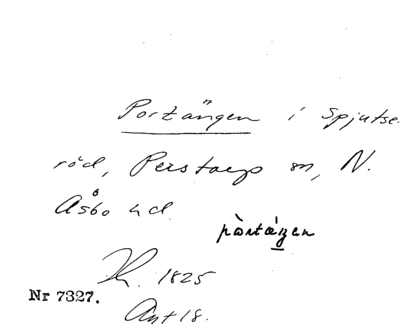 Portängen i Spjutse-
röd, Perstorps sn, N.
Åsbo hd.
pòrtä́ŋen
1825
Nr 7327.
Ant 18.